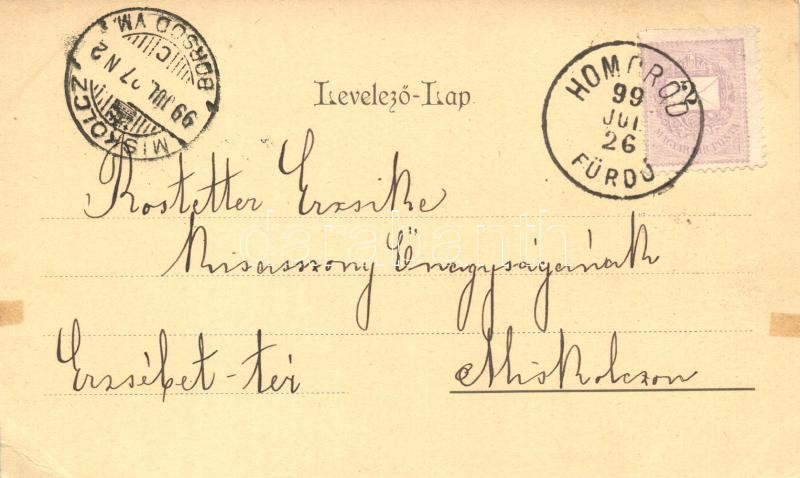 MISKOLCZ
BORSOD VM.
C
99 JUL. 27 N 2
HOMOROD
99
JUL
26
FÜRDŐ
2
MAGYAR KIR. POSTA
Levelező-Lap
Rostetter Erzsike
kisasszony Őnagyságának
Erzsébet-tér Miskolczon
darabanth